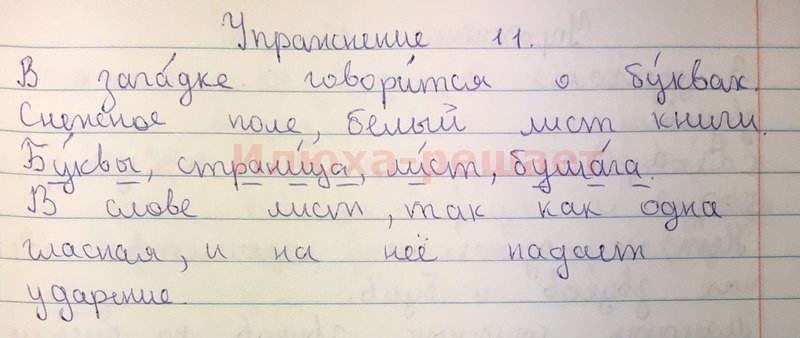 Упражнение 11.
В зага́дке говори́тся о бу́квах.
Снежное поле, белый лист книги.
Бу́квы, страни́ца, ли́ст, бума́га.
Илюха-решает
В слове лист, так как одна
гласная, и на неё падает
ударение.